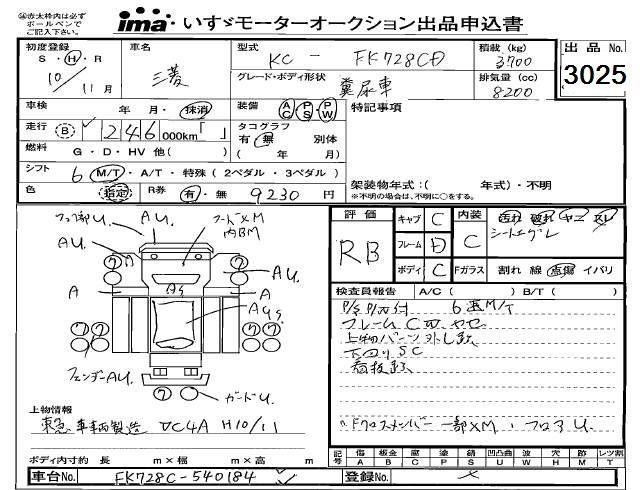 ㊟赤太枠内は必ず
ボールペンで
ご記入下さい。
ima いすゞモーターオークション出品申込書
初度登録 S・H・R 10年 11月
車名 三菱
型式 KC - FK728CD
積載(kg) 3700
出品No. 3025
グレード・ボディ形状 糞尿車
排気量(cc) 8200
車検 年 月・抹消
装備 AC PS PW
特記事項
走行 B 246,000km「 」
タコグラフ 有・無 別体 ( 年 月)
燃料 G・D・HV 他( )
シフト 6 M/T・A/T・特殊(2ペダル・3ペダル)
架装物年式:( 年式)・不明
※不明の場合は、不明に○をする。
色 指定 R券 有・無 9230円
評価 RB
キャブ C
内装 C
汚れ 破れ ヤニ スレ
シートエグレ
フレーム D
ボディ C
Fガラス 割れ 線 点傷 イバリ
検査員報告 A/C( )B/T( )
6速M/T
フレームC
上物パーツ外し跡
下回りSC
看板跡
クロスメンバー一部XM、フロアU
AU
内BM
AU
AU
A
A
フェンダーAU
ガードU
上物情報
東急車輌製造 VC4A H10/11
ボディ内寸約 長 m×幅 m×高 m
記号 傷 A 板金 B 腐 C 塗 P 錆 S 凹凸凸凹 U 波 W 穴 H 跡 M レツ割 T
車台No. FK728C-540184
登録No.